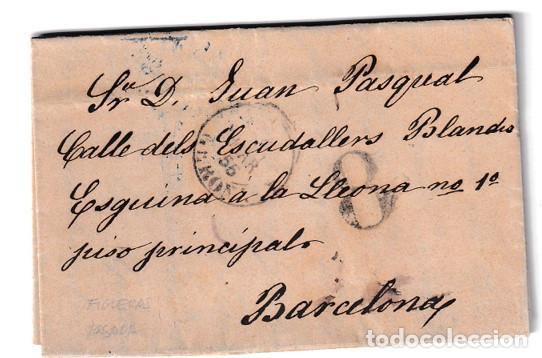 Sr. D. Juan Pasqual
Calle dels Escudallers Blanchs
Esquina a la Lleona no. 1º
piso principal
Barcelona
8
FIGUERAS
todocoleccion.net